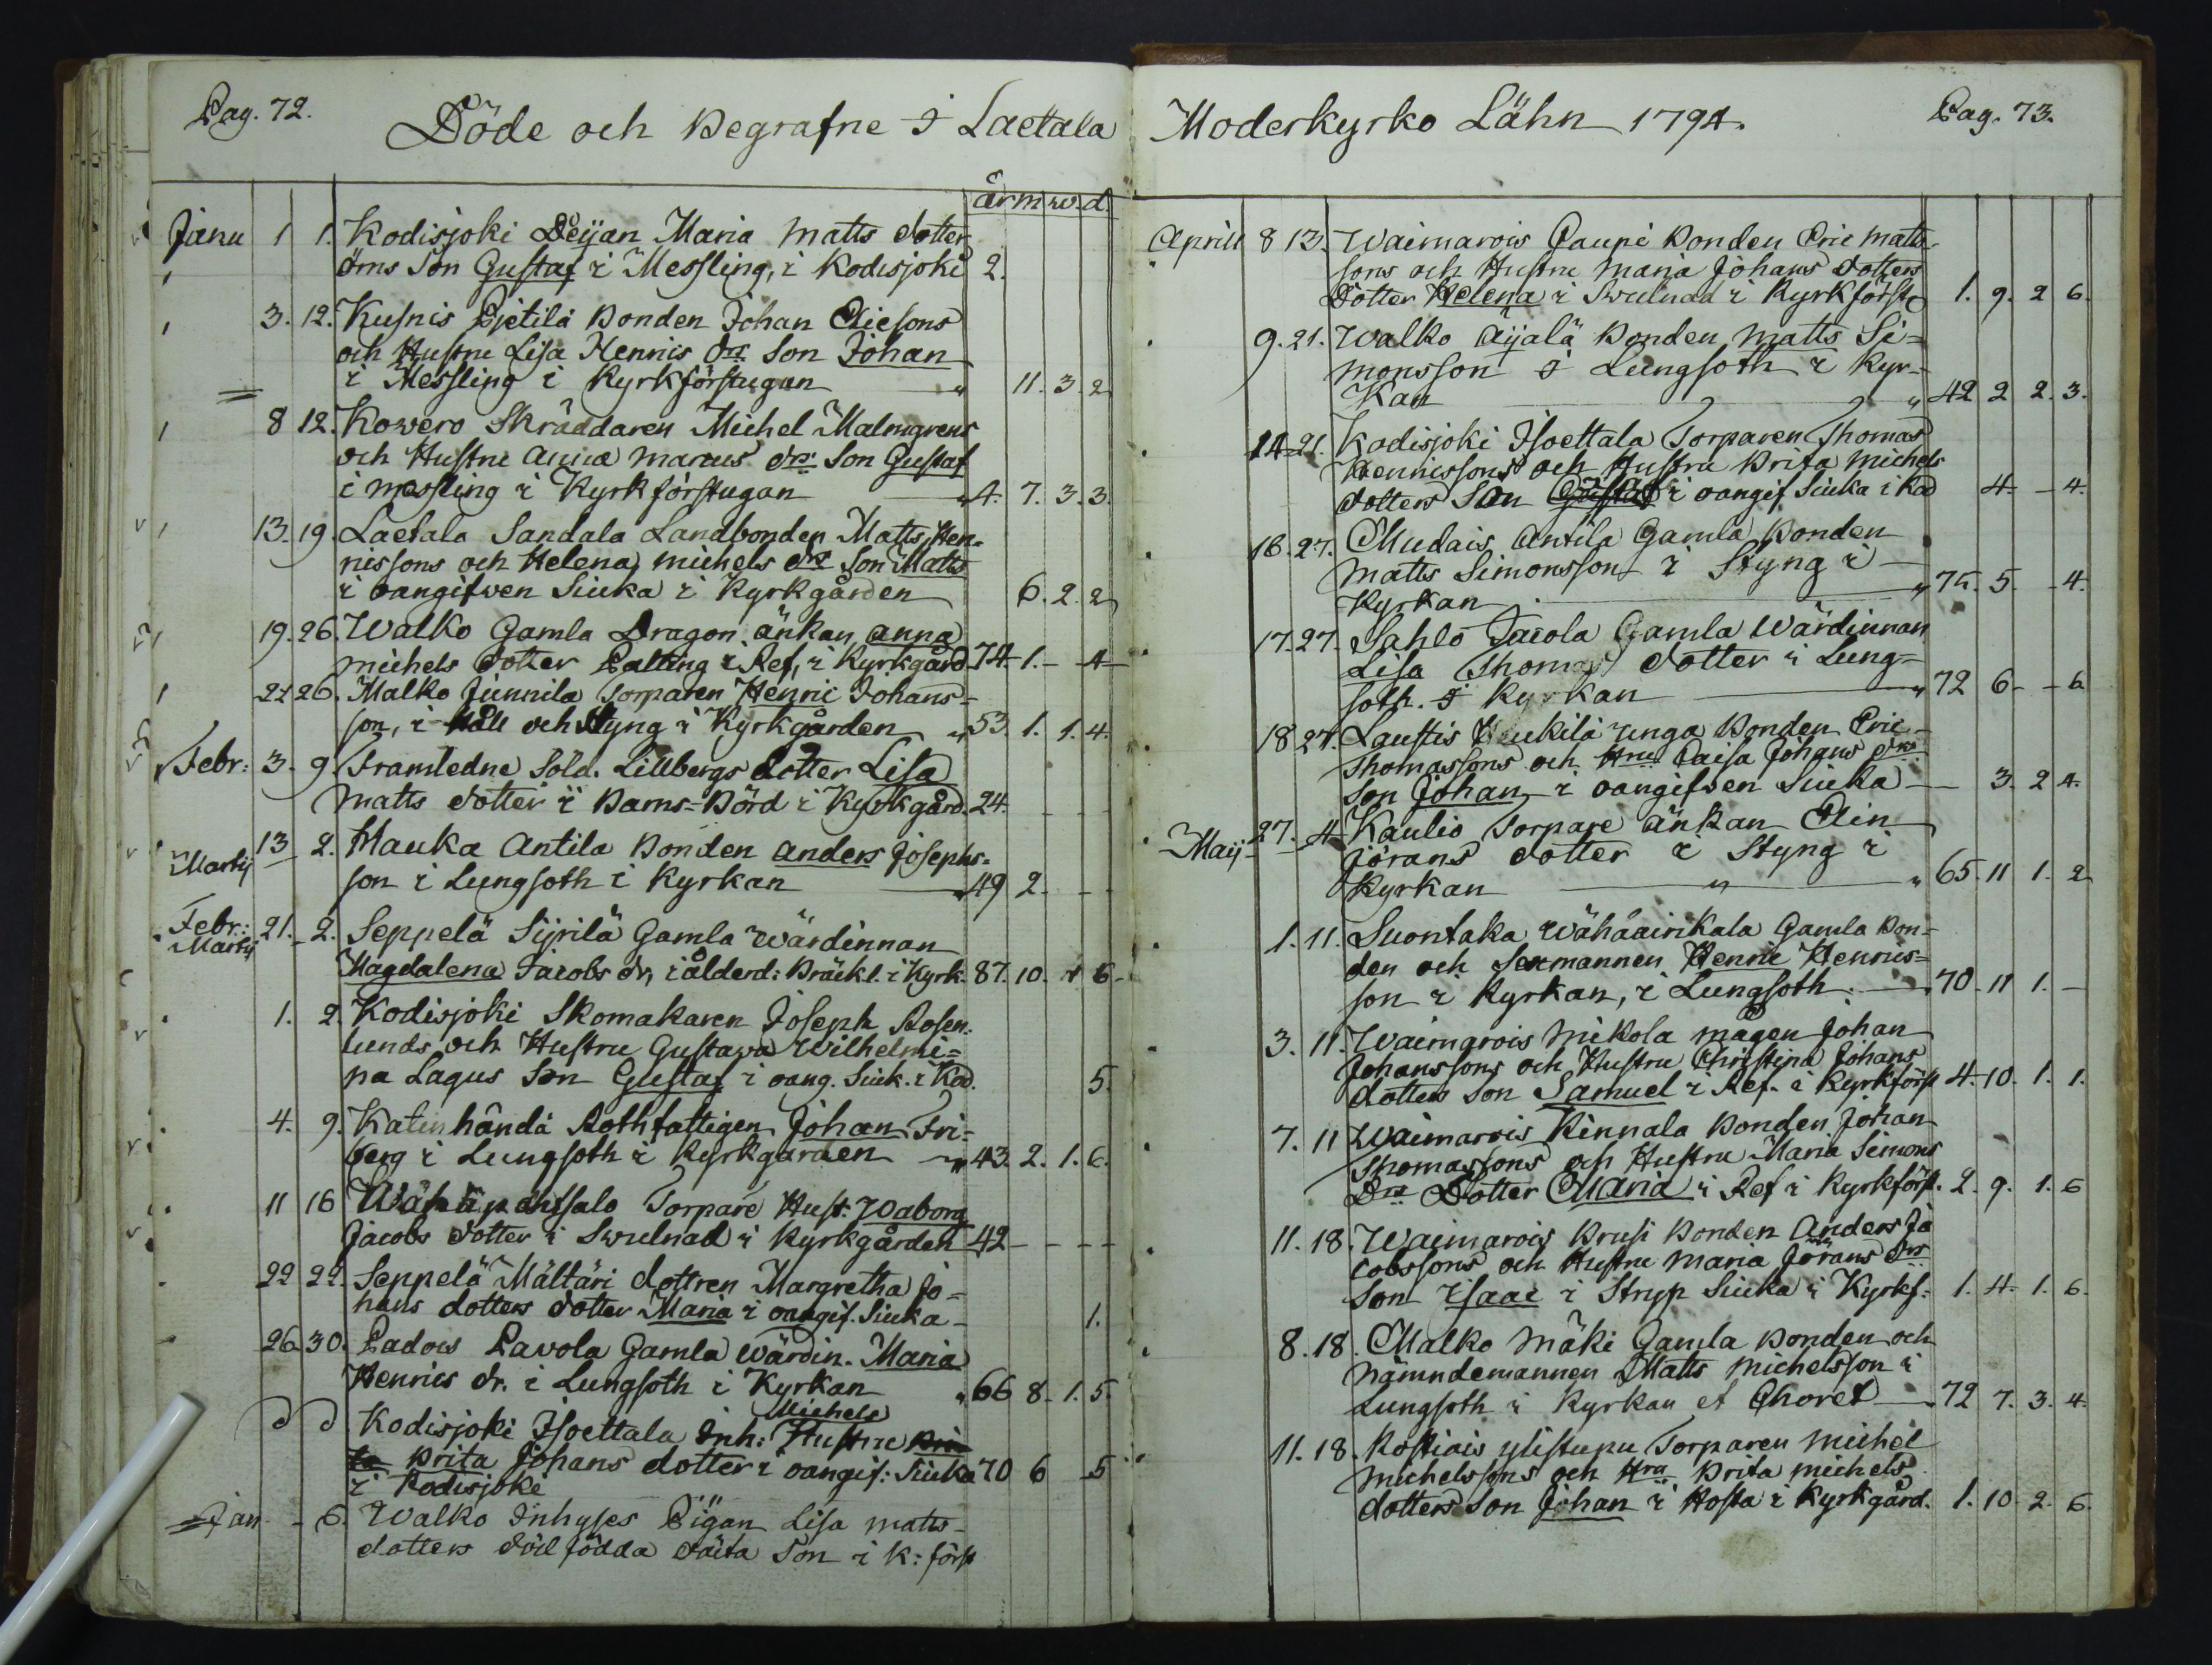 Pag. 72.
Döde och Begrafne i Laetala
år m w. d.
Janu 1 1. Kodisjoki Pijan Maria Matts dotter
öms Son Gustaf i Messling, i Kodisjoki 2.
3. 12. Kusnis Pietilä Bonden Johan Ericsons
och Hustru Lisa Henrics drs Son Johan
i Messling i Kyrkförstugan " 11. 3. 2
8 12. Kowero Skräddaren Michel Malmgrens
och Hustru Anna Marcus drs Son Gustaf
i messling i Kyrkförstugan 4. 7. 3. 3.
13. 19. Laetala Sandala Landbonden Matts Hen-
rissons och Helena michels drs Son Matts
i oangifwen Siuka i Kyrkgården 6. 2. 2
19. 26. Walko Gamla Dragon änkan Anna
michels dotter Palting i Ref, i Kyrkgård 74 1. - 4
21 26. Malko Junnila Torparen Henric Johans-
son, i Håll och Styng i Kyrkgården " 53. 1. 1. 4.
Febr: 3. 9. Framledne Sold. Lillbergs dotter Lisa
Matts dotter i Barns-Börd i Kyrkgård. 24. - - -
Martij 13 2. Hauka Antila Bonden Anders Josephs-
son i Lungsoth i Kyrkan 49 2. - -
Febr:: Martij 21. 2. Seppelä Sijrilä Gamla Wärdinnan
Magdalena Jacobs dr, i ålderd: Bräckl. i Kyrk. 87. 10. 1 6-
1. 2. Kodisjoki Skomakaren Joseph Rosen-
lunds och Hustru Gustava Wilhelmi-
na Lagus Son Gustaf i oang. Siuk. i Kod. 5.
4. 9. Katinhändä Rothfattigen Johan Fri-
berg i Lungsoth i Kyrkgården " 43. 2. 1. 6.
11 16 Torpare Hust: Waborg
Jacobs dotter i Swulnad i Kyrkgården 42 - - -
22 22. Seppelä Mältäri dottren Margretha Jo-
hans dotters dotter Maria i oangif. Siuka - 1.
26 30. Padois Pavola Gamla wärdin. Maria
Henrics dr. i Lungsoth i Kyrkan " 66 8. 1. 5.
d d Kodisjoki Isoettala Inh: Michels Hustru
Brita Johans dotter i oangif: Siuka 70 6 5
i Kodisjoki
Jan - 6. Walko Inhyses Pigan Lisa matts-
dotters död födda oäcta Son i K: först
Moderkyrko Lähn 1794.
Pag. 73.
Aprill 8 13. Waimarois Jaupi Bonden Eric matts-
sons och Hustru Maria Johans dotters
dotter Helena i Swulnad i Kyrkförst 1. 9. 2 6.
9. 21. Walko Äijälä Bonden Matts Si-
monsson i Lungsoth i Kyr-
kan " 42 2 2. 3.
14 21. Kodisjoki Isoettala Torparen Thomas
Henricssons och Hustru Brita Michels
dotters Son Gustaf i oangif Siuka i Kod 4. - 4.
16. 27. Mudais Antila Gamla Bonden
Matts Simonsson i Styng i
Kyrkan " 75. 5. - 4.
17. 27. Sahlo Jacola Gamla Wärdinnan
Lisa Thomas dotter i Lung-
soth. i Kyrkan " 72 6 - - 6
18 27. Laustis Heikilä unga Bonden Eric
Thomassons och Hru Caisa Johans drs
Son Johan i oangifwen Siuka - 3. 2 4.
Maij 27. 4 Kaulio Torpare änkan Elin
Jörans dotter i Styng i
Kyrkan " " 65. 11 1. 2
1. 11. Suontaka Wähääirikala Gamla Bon-
den och Sexmannen Henric Henrics-
son i Kyrkan, i Lungsoth 70 11 1. -
3. 11. Waimarois Mikola magen Johan
Johanssons och Hustru Christina Johans
dotters Son Samuel i Ref. i Kyrkförst 4. 10. 1. 1.
7. 11 Waimarois Kinnala Bonden Johan
Thomassons och Hustru Maria Simons
Drs Dotter Maria i Ref i Kyrkförst. 2. 9. 1. 6
11. 18. Waimarois Krusi Bonden Anders Ja
cobssons och Hustru Maria Jörans Drs
Son Isaac i Stryp Siuka i Kyrkf: 1. 4. 1. 6.
8. 18. Malko Mäki Gamla Bonden och
Nämndemannen Matts Michelsson i
Lungsoth i Kyrkan et Choret 72 7. 3. 4.
11. 18. Kostiais ylistupu Torparen Michel
Michelssons och Hru Brita michels
dotters Son Johan i Hosta i Kyrkgård. 1. 10. 2. 6.